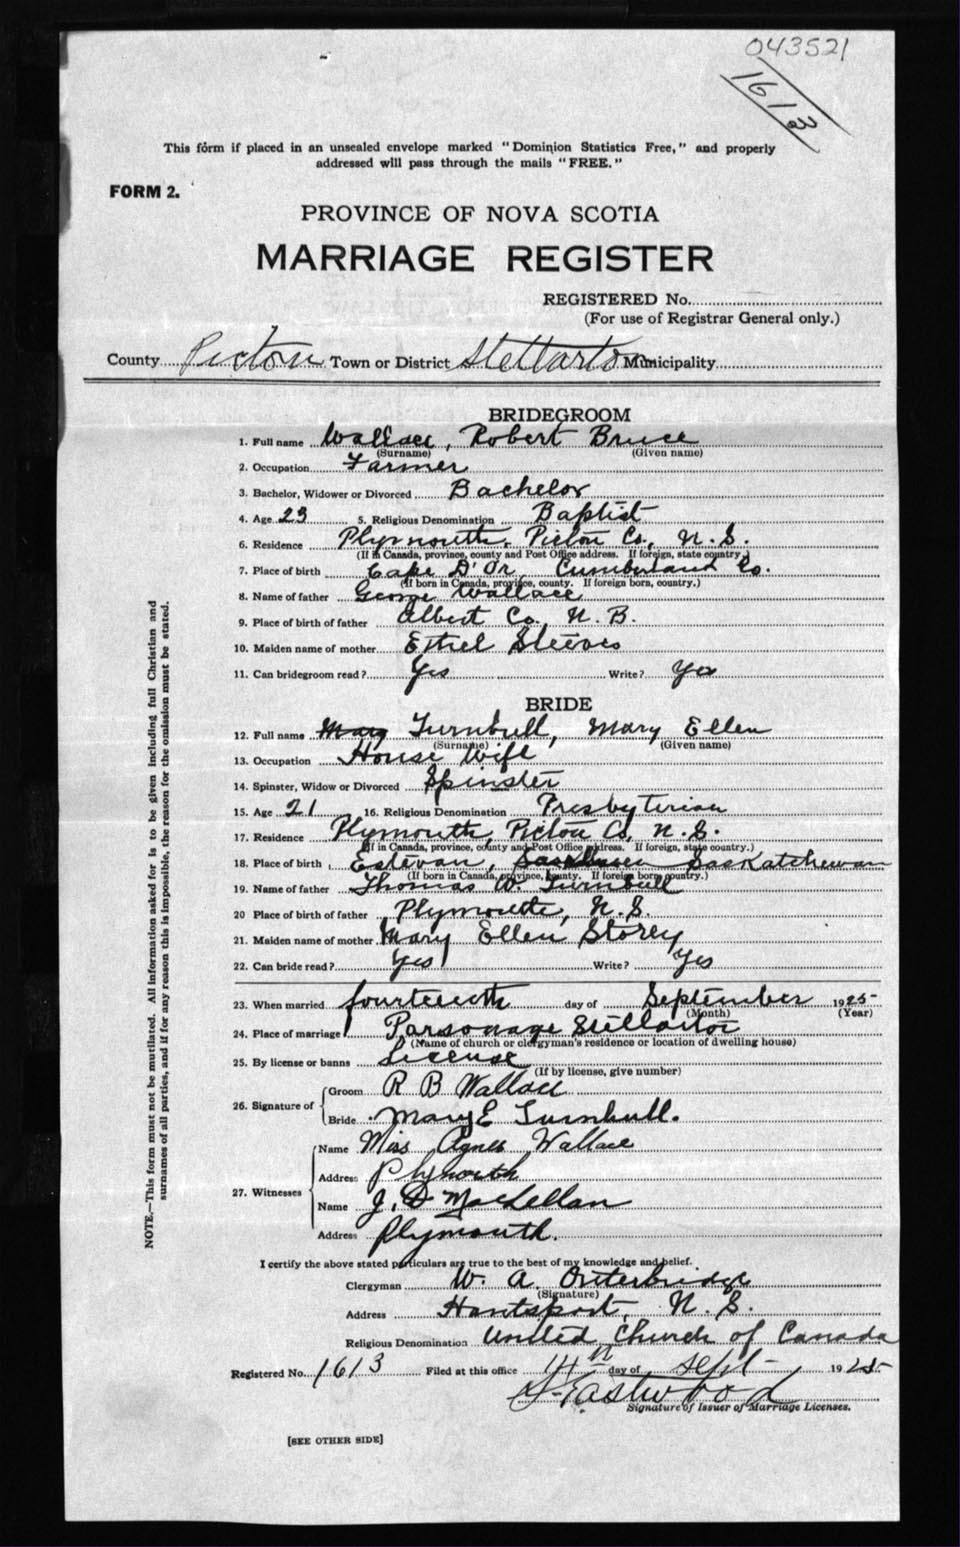 043521
1613
This form if placed in an unsealed envelope marked "Dominion Statistics Free," and properly
addressed will pass through the mails "FREE."
FORM 2.
PROVINCE OF NOVA SCOTIA
MARRIAGE REGISTER
REGISTERED No.
(For use of Registrar General only.)
County Pictou Town or District Stellarton Municipality
BRIDEGROOM
1. Full name Wallace, Robert Bruce
(Surname) (Given name)
2. Occupation Farmer
3. Bachelor, Widower or Divorced Bachelor
4. Age 23 5. Religious Denomination Baptist
6. Residence Plymouth, Pictou Co., N.S.
(If in Canada, province, county and Post Office address. If foreign, state country.)
7. Place of birth Cape D'Or, Cumberland Co.
(If born in Canada, province, county. If foreign born, country.)
8. Name of father George Wallace
9. Place of birth of father Albert Co. N.B.
10. Maiden name of mother Ethel Steeves
11. Can bridegroom read? Yes Write? Yes
BRIDE
12. Full name Mary Turnbull, Mary Ellen
(Surname) (Given name)
13. Occupation House Wife
14. Spinster, Widow or Divorced Spinster
15. Age 21 16. Religious Denomination Presbyterian
17. Residence Plymouth, Pictou Co, N.S.
(If in Canada, province, county and Post Office address. If foreign, state country.)
18. Place of birth Estevan, Saskatchewan
(If born in Canada, province, county. If foreign born country.)
19. Name of father Thomas W. Turnbull
20 Place of birth of father Plymouth, N.S.
21. Maiden name of mother Mary Ellen Storey
22. Can bride read? Yes Write? Yes
23. When married fourteenth day of September 1925
(Month) (Year)
24. Place of marriage Parsonage Stellarton
(Name of church or clergyman's residence or location of dwelling house)
25. By license or banns License
(If by license, give number)
26. Signature of
Groom R B Wallace
Bride Mary E Turnbull.
27. Witnesses
Name Miss Agnes Wallace
Address Plymouth
Name J. D MacLellan
Address Plymouth.
I certify the above stated particulars are true to the best of my knowledge and belief.
Clergyman W. A. Outerbridge
(Signature)
Address Hantsport, N.S.
Religious Denomination United Church of Canada
Registered No. 1613 Filed at this office 14th day of Sept- 1925
Eastwood
Signature of Issuer of Marriage Licenses.
[SEE OTHER SIDE]
NOTE.—This form must not be mutilated. All information asked for is to be given including full Christian and
surnames of all parties, and if for any reason this is impossible, the reason for the omission must be stated.